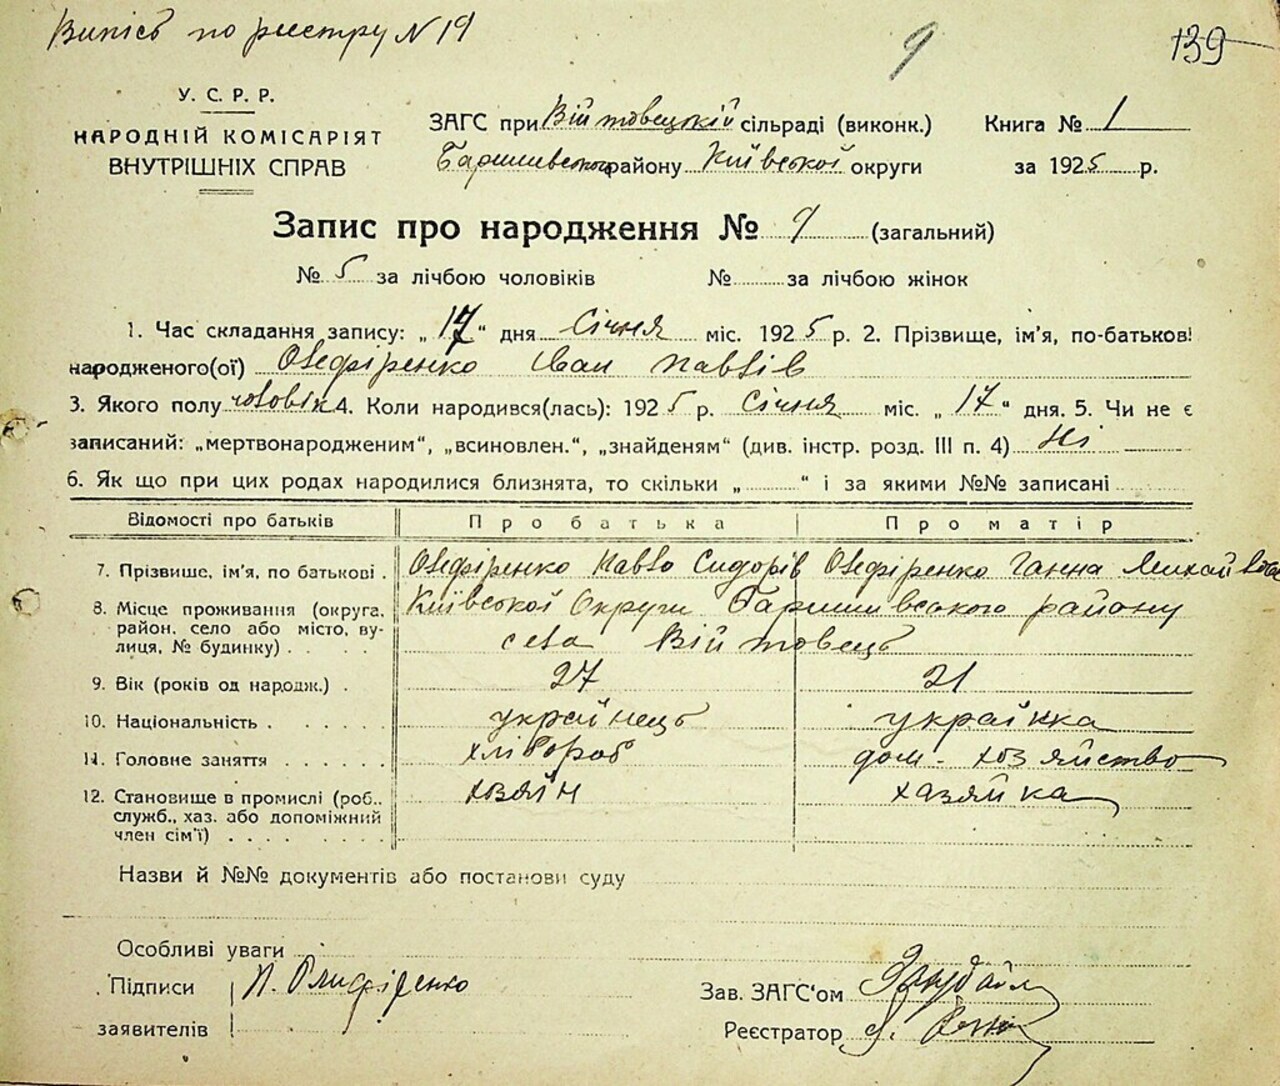 Випісь по реєстру N 19
9
139
У. С. Р. Р.
НАРОДНІЙ КОМІСАРІЯТ
ВНУТРІШНІХ СПРАВ
ЗАГС при Війтовецькій сільраді (виконк.)
Баришивського району Київської округи
Книга № 1
за 1925 р.
Запис про народження № 9 (загальний)
№ 5 за лічбою чоловіків № за лічбою жінок
1. Час складання запису: „17“ дня Січня міс. 1925 р. 2. Прізвище, ім'я, по-батькові
народженого(ої) Олефіренко Іван Павлів
3. Якого полу чоловік 4. Коли народився(лась): 1925 р. Січня міс. „17“ дня. 5. Чи не є
записаний: „мертвонародженим“, „всиновлен.“, „знайденям“ (див. інстр. розд. III п. 4) Ні
6. Як що при цих родах народилися близнята, то скільки „ “ і за якими №№ записані
Відомості про батьків Про батька Про матір
7. Прізвище, ім'я, по батькові . Олефіренко Павло Сидорів Олефіренко Ганна
8. Місце проживання (округа, район, село або місто, ву-
лиця, № будинку) . . . . Київської Округи Баришівського району
села Війтовець
9. Вік (років од народж.) . 27 21
10. Національність . . . . . . українець українка
11. Головне заняття . . . . . . хлібороб дом - хозяйство
12. Становище в промислі (роб., хозяїн хазяйка
служб., хаз. або допоміжний
член сім'ї) . . . . . . .
Назви й №№ документів або постанови суду
Особливі уваги
Підписи П. Олифіренко
заявителів
Зав. ЗАГС'ом
Реєстратор